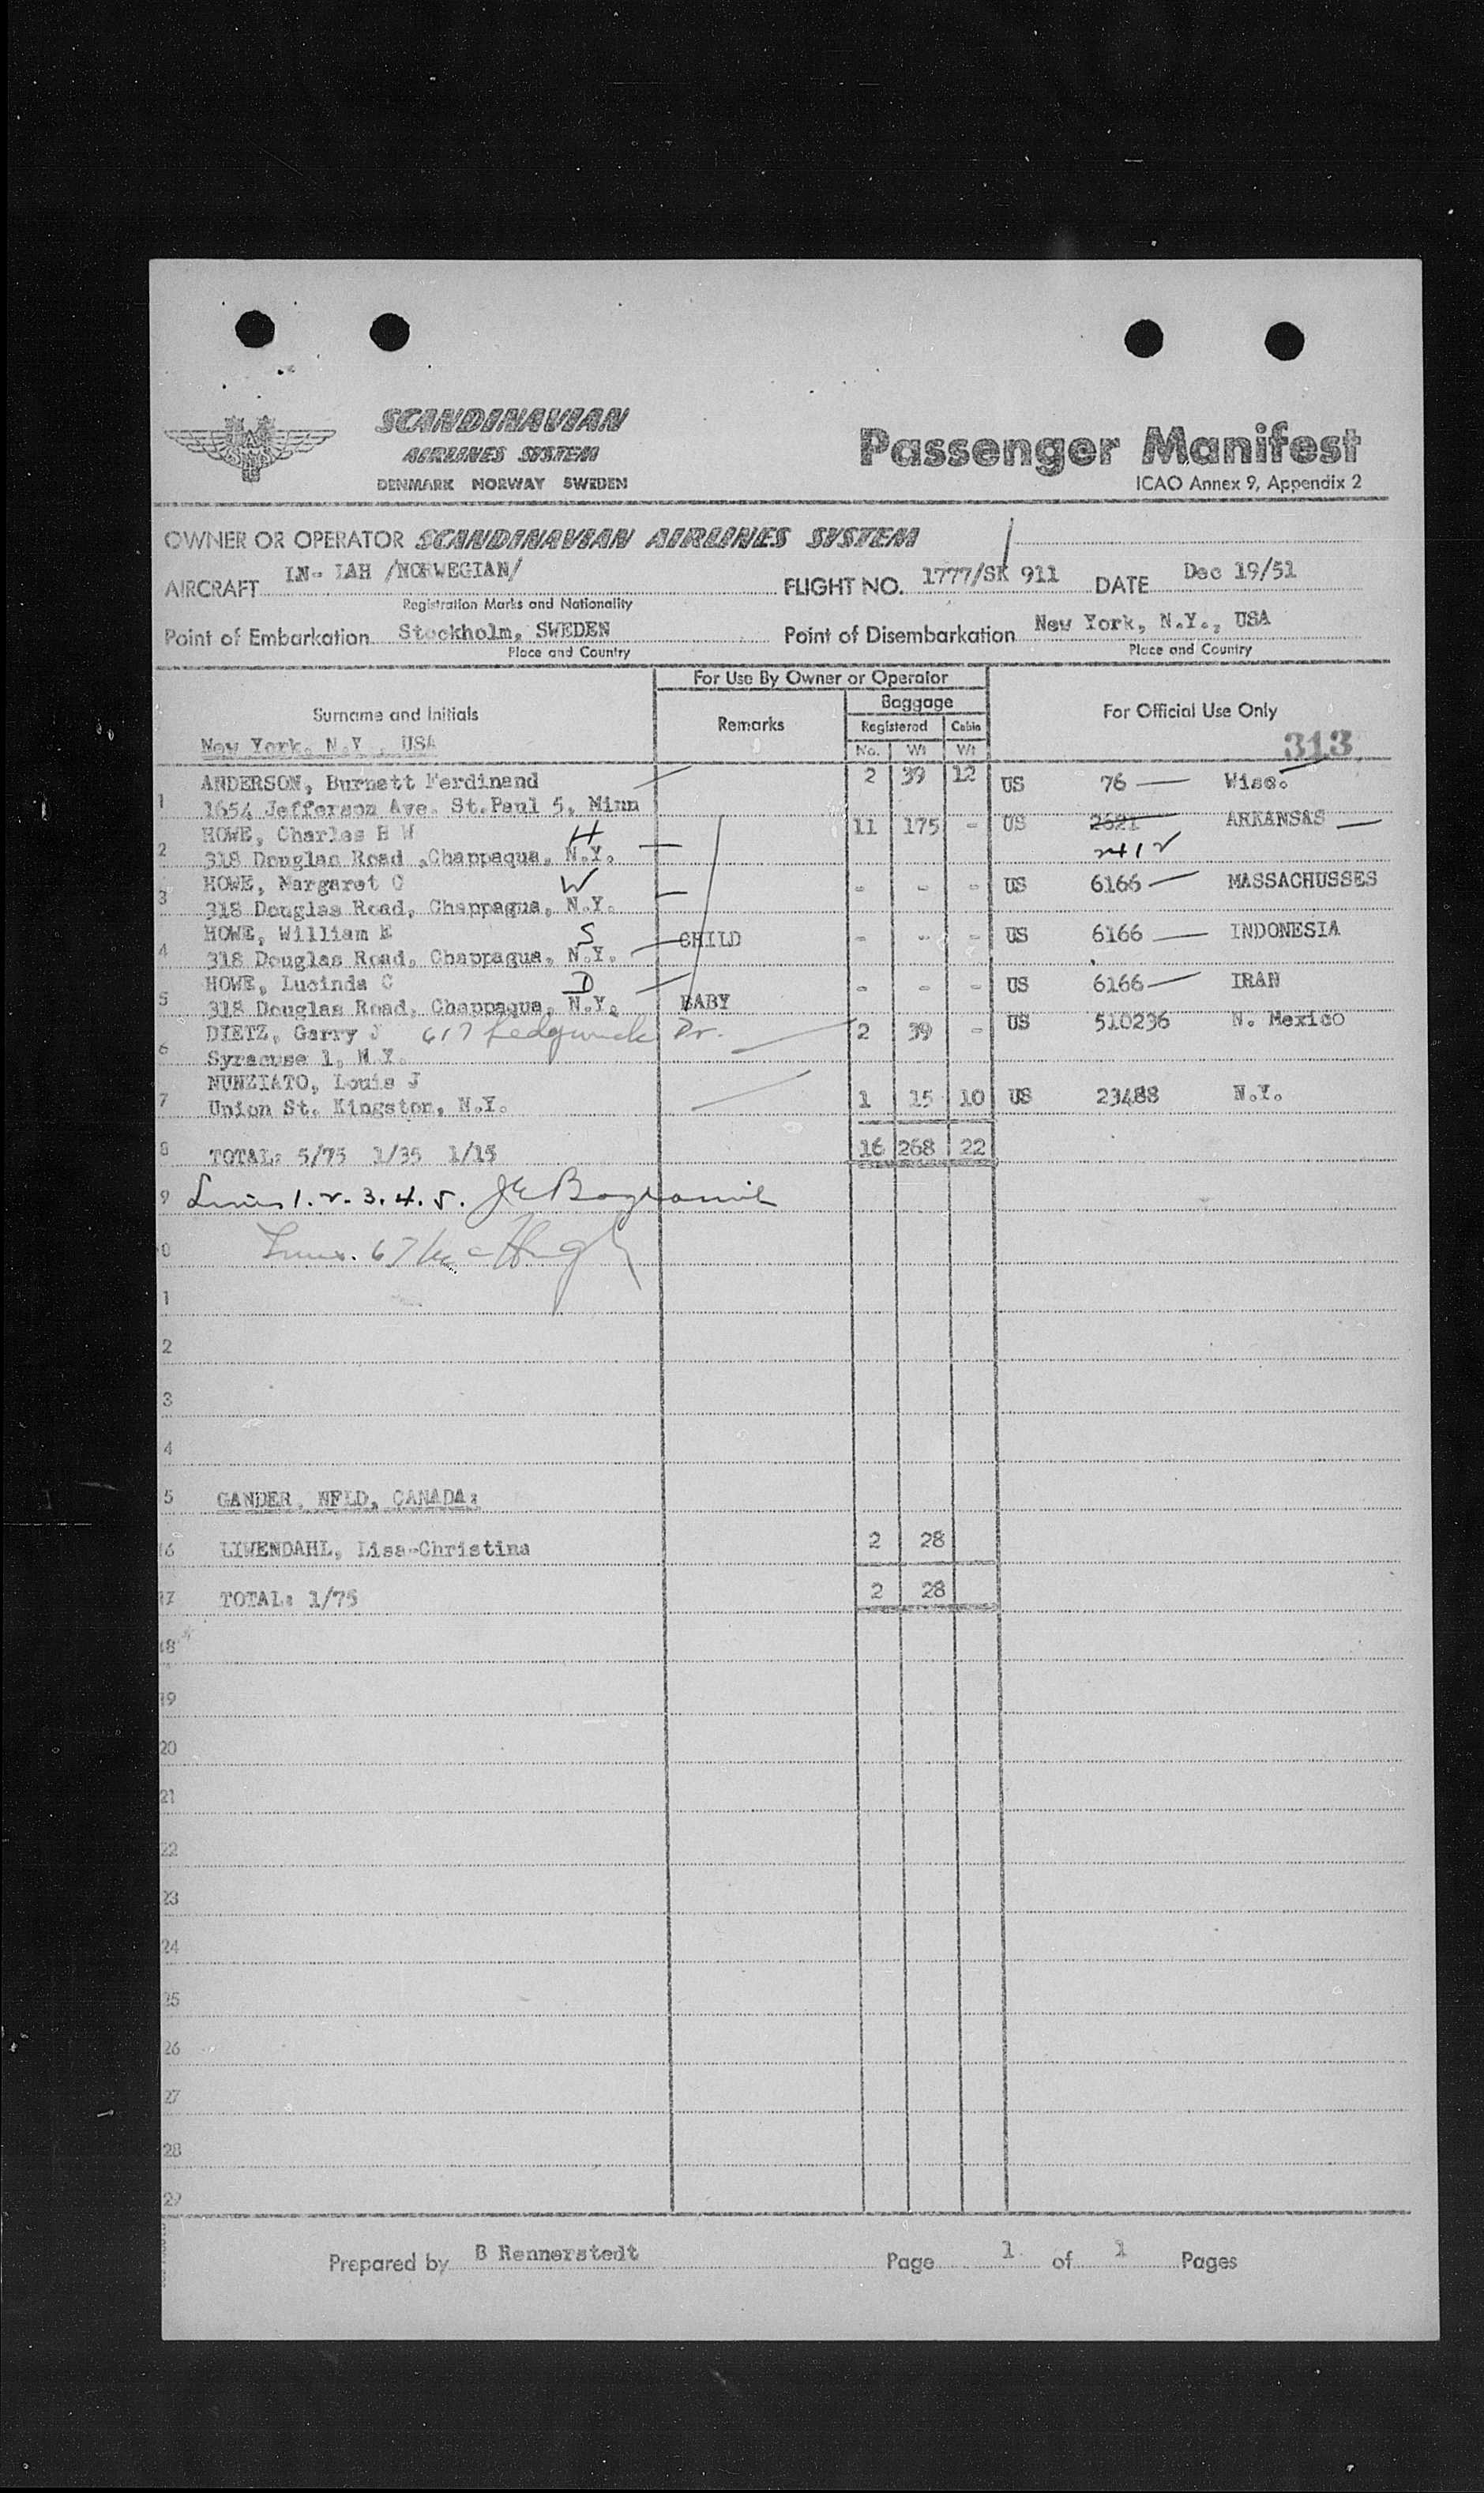 SCANDINAVIAN
AIRLINES SYSTEM
DENMARK NORWAY SWEDEN
Passenger Manifest
ICAO Annex 9, Appendix 2
OWNER OR OPERATOR SCANDINAVIAN AIRLINES SYSTEM
AIRCRAFT LN- IAH /NORWEGIAN/ FLIGHT NO. 1777/SK 911 DATE Dec 19/51
Registration Marks and Nationality
Point of Embarkation Stockholm, SWEDEN Point of Disembarkation New York, N.Y., USA
Place and Country Place and Country
For Use By Owner or Operator
Baggage
Surname and Initials Remarks Registered Cabin For Official Use Only
New York, N.Y., USA No. Wt Wt 313
ANDERSON, Burnett Ferdinand 2 39 12 US 76 — Wisc.
1 1654 Jefferson Ave. St.Paul 5, Minn
HOWE, Charles B W H 11 175 - US 2621 ARKANSAS —
2 318 Douglas Road ,Chappaqua, N.Y. 2412
HOWE, Margaret C W - - - US 6166 — MASSACHUSSES
3 318 Douglas Road, Chappaqua, N.Y.
HOWE, William E S CHILD - - - US 6166 — INDONESIA
4 318 Douglas Road, Chappaqua, N.Y.
HOWE, Lucinda C D - - - US 6166 — IRAN
5 318 Douglas Road, Chappaqua, N.Y. BABY
DIETZ, Garry J 617 Sedgwick Dr. 2 39 - US 510236 N. Mexico
6 Syracuse 1, N.Y.
NUNZIATO, Louis J
7 Union St. Kingston, N.Y. 1 15 10 US 23488 N.Y.
8 TOTAL: 5/75 1/35 1/15 16 268 22
9 Lines 1. 2. 3. 4. 5. J E
0 Lines. 6 7 McHugh
1
2
3
4
5 GANDER, NFLD, CANADA:
16 LIWENDAHL, Lisa-Christina 2 28
17 TOTAL: 1/75 2 28
18
19
20
21
22
23
24
25
26
27
28
29
Prepared by B Rennerstedt Page 1 of 1 Pages